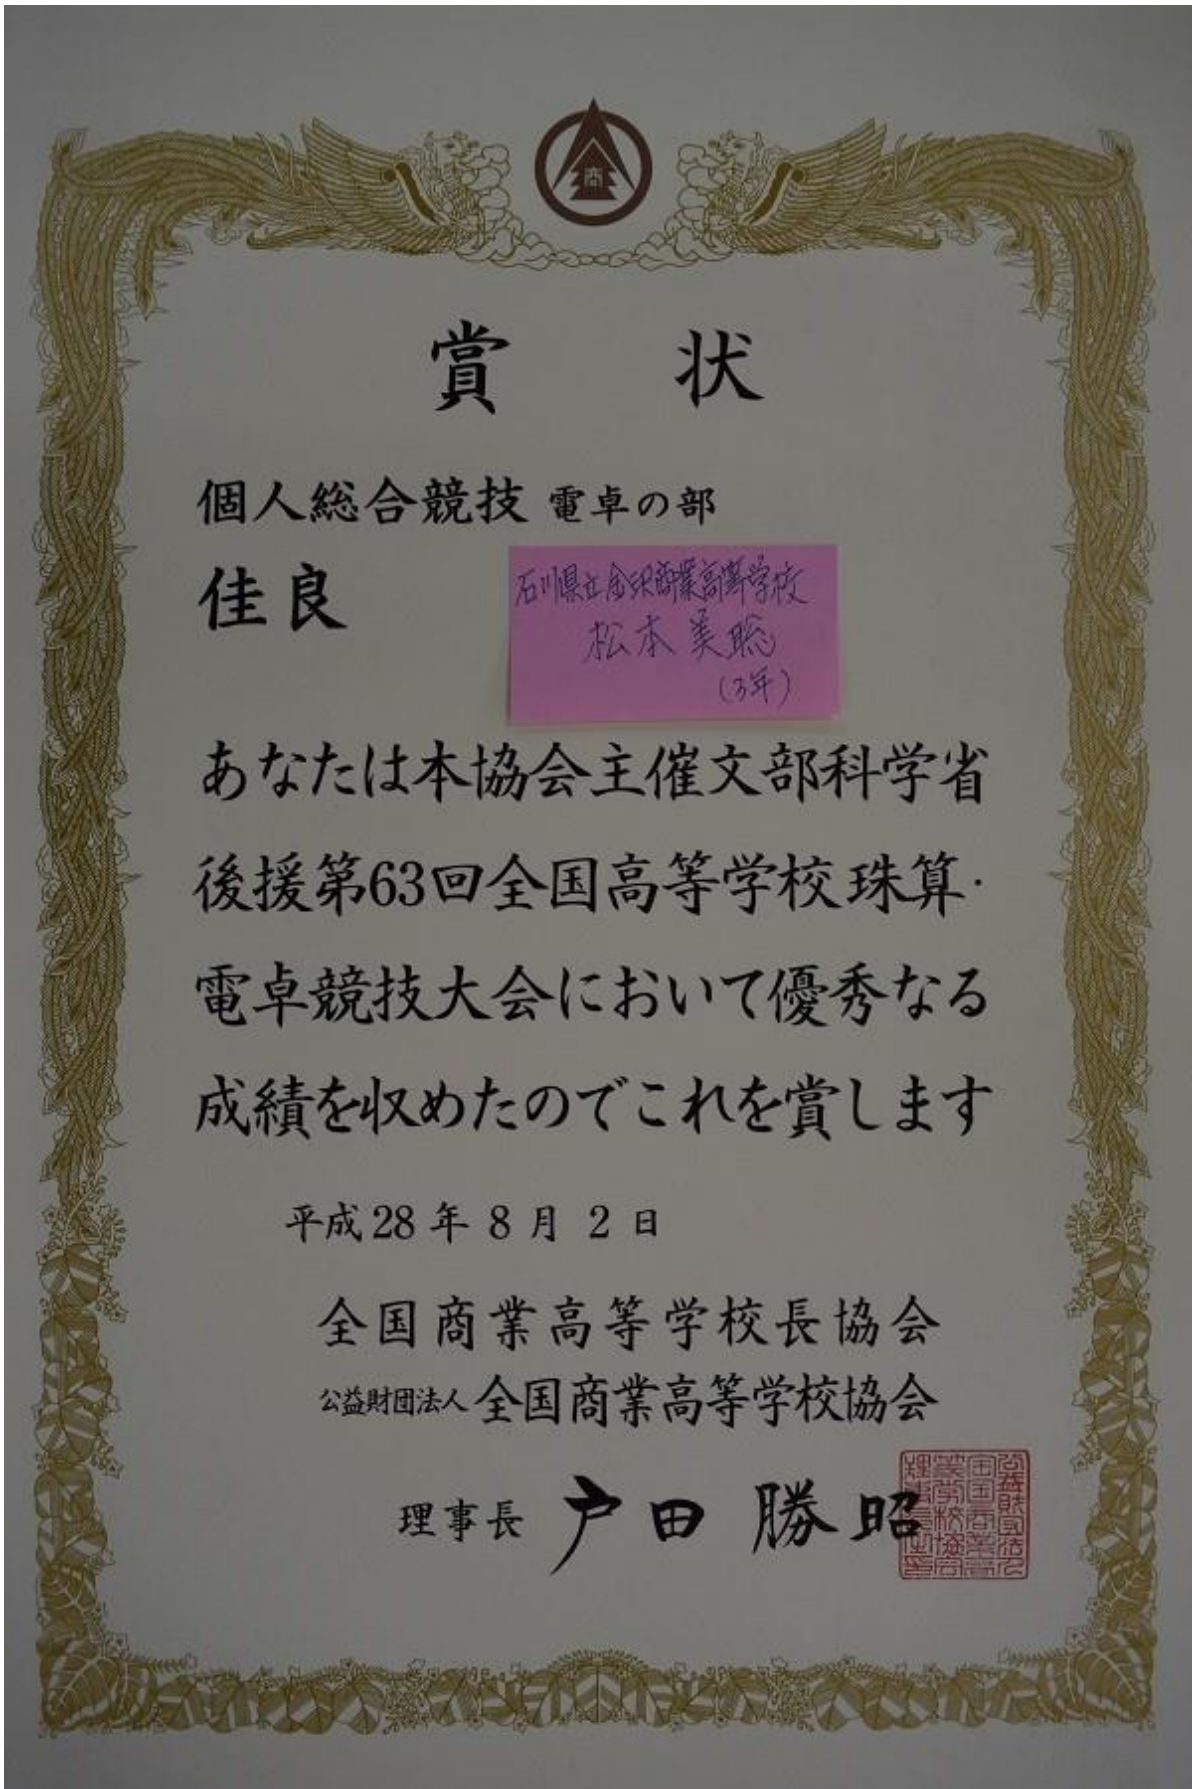 商
賞 状
個人総合競技 電卓の部
佳良
石川県立金沢商業高等学校
松本美聡
(3年)
あなたは本協会主催文部科学省
後援第63回全国高等学校珠算・
電卓競技大会において優秀なる
成績を収めたのでこれを賞します
平成28年8月2日
全国商業高等学校長協会
公益財団法人全国商業高等学校協会
理事長 戸田勝昭